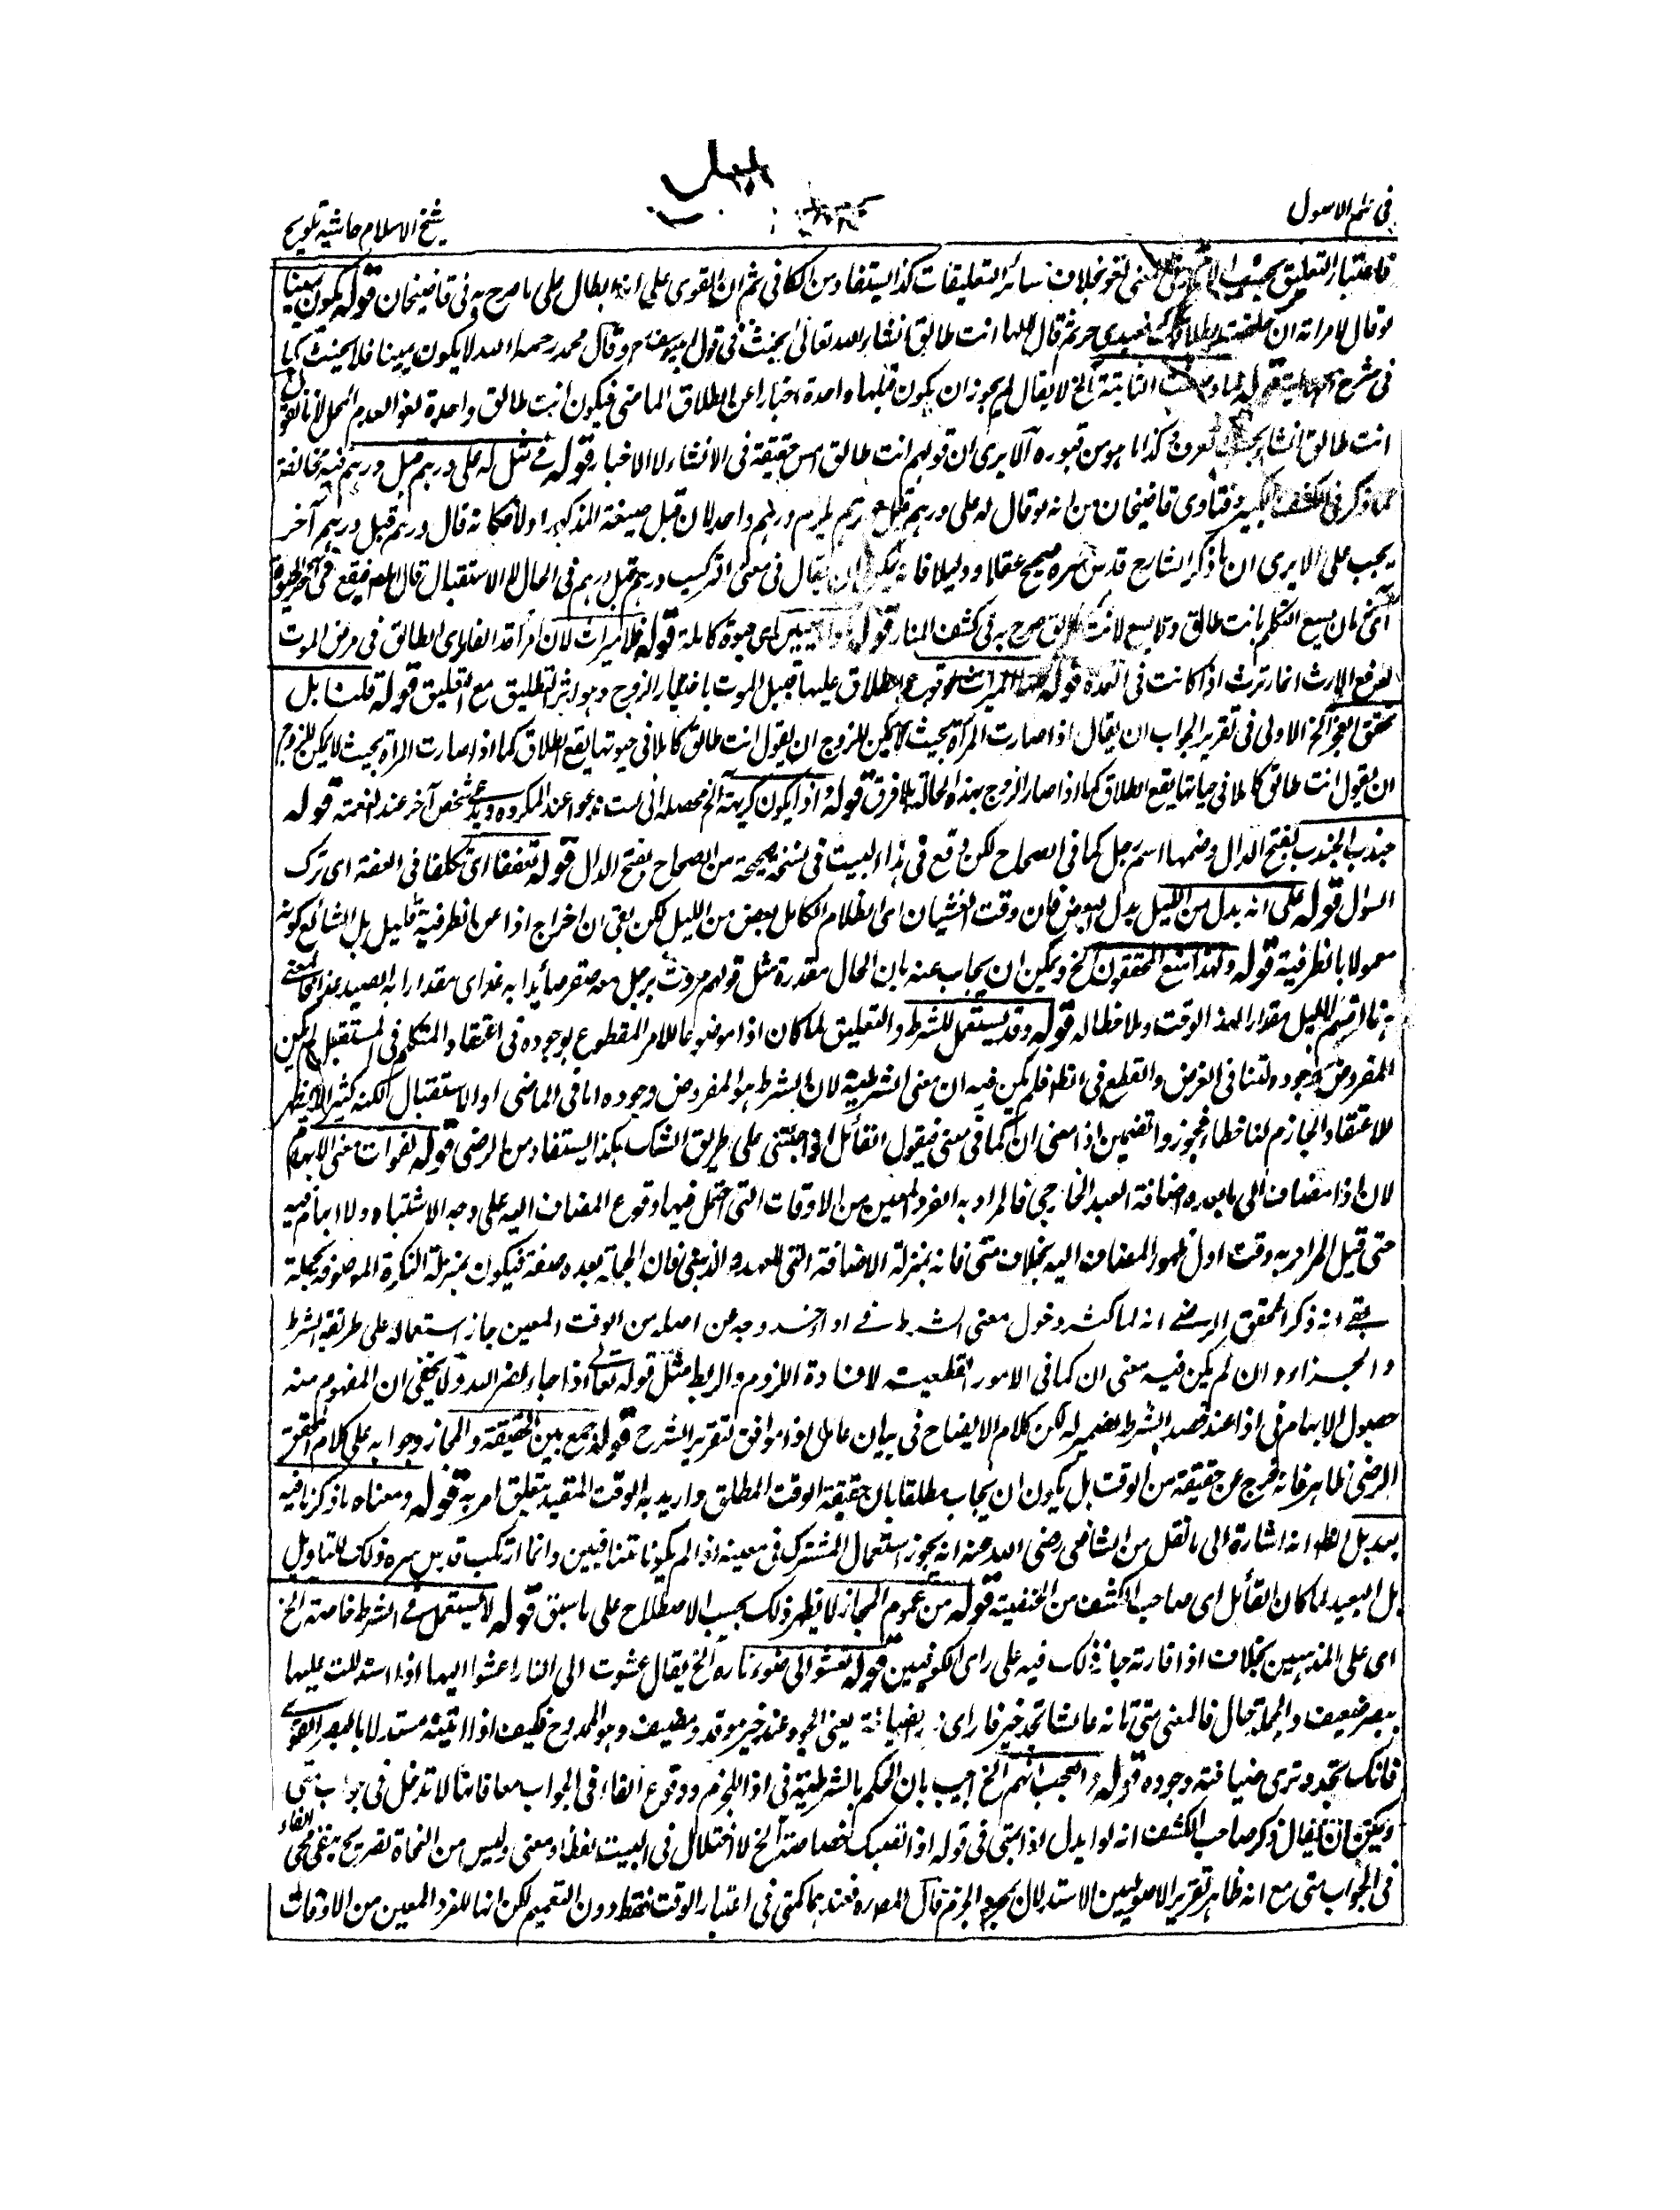 في علم الاصول
شيخ الاسلام حاشية تلويح
فاعتبار التعليق بحسب لغو بخلاف سائر التعليقات كذا يستفاد من الكافي ثم ان القوى على انه ابطال على ما صرح به في قاضيخان قوله يكون يمينا
لو قال لامراته ان حلفت بطلاقك فعبدي حر ثم قال لها انت طالق انشاء الله تعالى يحنث في قول ابي يوسف رح وقال محمد رحمه الله لا يكون يمينا فلا يحنث كما
في شرح الثابتة الخ لا يقال لم يجوز ان يكون قبلها واحدة اخبارا عن الطلاق الماضي فيكون انت طالق واحدة لغو العدم المحل لانا نقول
انت طالق انشاء بحسب العرف كذا ما هو من قبوره الا يرى ان قولهم انت طالق امس حقيقة في الانشاء لا الاخبار قوله في مثل له على درهم قبل درهم فيه مخالفة
لما ذكر في الكشف الكبير وفتاوى قاضيخان من انه لو قال له على درهم قبل درهم يلزم درهم واحد لان قبل صيغة المذكور اولا فكانه قال درهم قبل درهم آخر
يجب على الا يرى ان ما ذكر الشارح قدس سره صحيح عقلا ودليلا فانه يمكن ان يقال في معنى التركيب درهم قبل درهم في الحال لا الاستقبال قال المص فيقع في آخر الحيوة
الخ بان يسع التكلم بانت طالق ولا يسع لانت طالق صرح به في كشف المنار قوله اي حيوة كاملة قوله فلا ميراث لان امرأة الفار اي الطالق في مرض الموت
لدفع الارث انما ترث اذا كانت في العدة قوله الميراث لوقوع الطلاق عليها قبيل الموت باختيار الزوج وهو اثر التطليق مع التعليق قوله قلنا بل
تحقق العجز الخ الاولى في تقرير الجواب ان يقال اذا صارت المرأة بحيث لا يمكن للزوج ان يقول انت طالق كاملا في حيوتها يقع الطلاق كما اذا صارت المرأة بحيث لا يمكن للزوج
ان يقول انت طالق كاملا في حياتها يقع الطلاق كما اذا صار الزوج بهذه الحالة بلا فرق قوله واذا يكون كريهة الخ محصله اني لست ادعو عند المكروه ويدعى شخص آخر عند النعمة قوله
جندب الجندب بفتح الدال وضمها اسم رجل كما في الصحاح لكن وقع في هذا البيت في نسخة صحيحة من الصحاح بفتح الدال قوله تعففا اي تكلفا في العفة اي ترك
السؤال قوله على انه بدل من الليل بدل البعض فان وقت الغشيان اي الظلام الكامل بعض من الليل لكن بقي ان اخراج اذا عن الظرفية قليل بل الشائع كونه
معمولا بالظرفية قوله ولهذا منع المحققون الخ ويمكن ان يجاب عنه بان الحال مقدرة مثل قولهم مررت برجل معه صقر صائدا به غدا اي مقدرا به الصيد غدا فالمعنى
ههنا اقسم بالليل مقدرا لهذا الوقت وملاحظا له قوله وقد يستعمل للشرط والتعليق لما كان اذا موضوعا للامر المقطوع بوجوده في اعتقاد المتكلم في المستقبل لم يكن
المفروض وجوده لتنافي الفرض والقطع في الظاهر فلم يكن فيه ان معنى الشرطية لان الشرط هو المفروض وجوده اما في الماضي او الاستقبال لكنه كثيرا لا يظهر
للاعتقاد الجازم لنا خطاء فجوزوا تضمين اذا معنى ان كما في متى فيقول القائل اذا جئتني على طريق الشك هكذا يستفاد من الرضى قوله لفوات معنى الابهام
لان اذا مضاف الى ما بعده اضافة العهد الخارجي فالمراد به الفرد المعين من الاوقات التي احتمل فيها وقوع المضاف اليه على وجه الاشتباه ولا ابهام فيه
حتى قيل المراد به وقت اول ظهور المضاف اليه بخلاف متى فانه بمنزلة الاضافة التي للعهد الذهني فان الجملة بعده صفة فيكون بمنزلة النكرة الموصوفة بجملة
بقي انه ذكر المحقق الرضى انه لما كثر دخول معنى الشرط في اذا وخروجه عن اصله من الوقت المعين جاز استعماله على طريقة الشرط
والجزاء وان لم يكن فيه معنى ان كما في الامور القطعية لافادة اللزوم والربط مثل قوله تعالى اذا جاء نصر الله ولا يخفى ان المفهوم منه
حصول الابهام في اذا عند قصد الشرط لكن كلام الايضاح في بيان عامل اذا موافق لتقرير الشرح قوله جمع بين الحقيقة والمجاز وجوابه على كلام المحقق
الرضى ظاهر فانه خرج عن حقيقة من الوقت بل يكون ان يجاب مطلقا بان حقيقة الوقت المطلق واريد به الوقت المقيد بتعلق امر به قوله ومعناه ما ذكرنا فيه
بعد بل الظاهر انه اشارة الى ما نقل من الشافعي رضي الله عنه انه يجوز استعمال المشترك في معنييه اذا لم يكونا متنافيين وانما ارتكب قدس سره ذلك للتاويل
بل البعيد لما كان القائل اي صاحب الكشف من الحنفية قوله من عموم المجاز لا يظهر ذلك بحسب الاصطلاح على ما سبق قوله لا يستعمل في الشرط خاصة الخ
اي على المذهبين بخلاف اذا فانه جاز ذلك فيه على راى الكوفيين قوله تعشو الى ضوء ناره الخ يقال عشوت الى النار اعشو اليها اذا استدللت عليها
ببصر ضعيف والجملة حال فالمعنى متى تاته عاشيا تجد خير نار اي ضيافة يعني الجود عند خير موقد ومضيف وهو الممدوح فكيف اذا اتيته مستدلا بالبصر القوى
فانك تجد وترى ضيافته وجوده قوله والعجب انهم الخ اجيب بان الحكم بالشرطية في اذا للجزم ووقوع الفاء في الجواب معا فانها لا تدخل في جواب متى
ويمكن ان يقال ذكر صاحب الكشف انه لو ابدل اذا بمتى في قوله اذا تصبك خصاصة الخ لا اختلال في البيت لفظا ومعنى وليس من النحاة تصريح بنفي مجئ الفاء
في الجواب متى مع انه ظاهر تقرير الاصوليين الاستدلال الجزم قال المصره فعندهما كمتى في اعتبار الوقت فقط دون التعميم لكن انها للفرد المعين من الاوقات